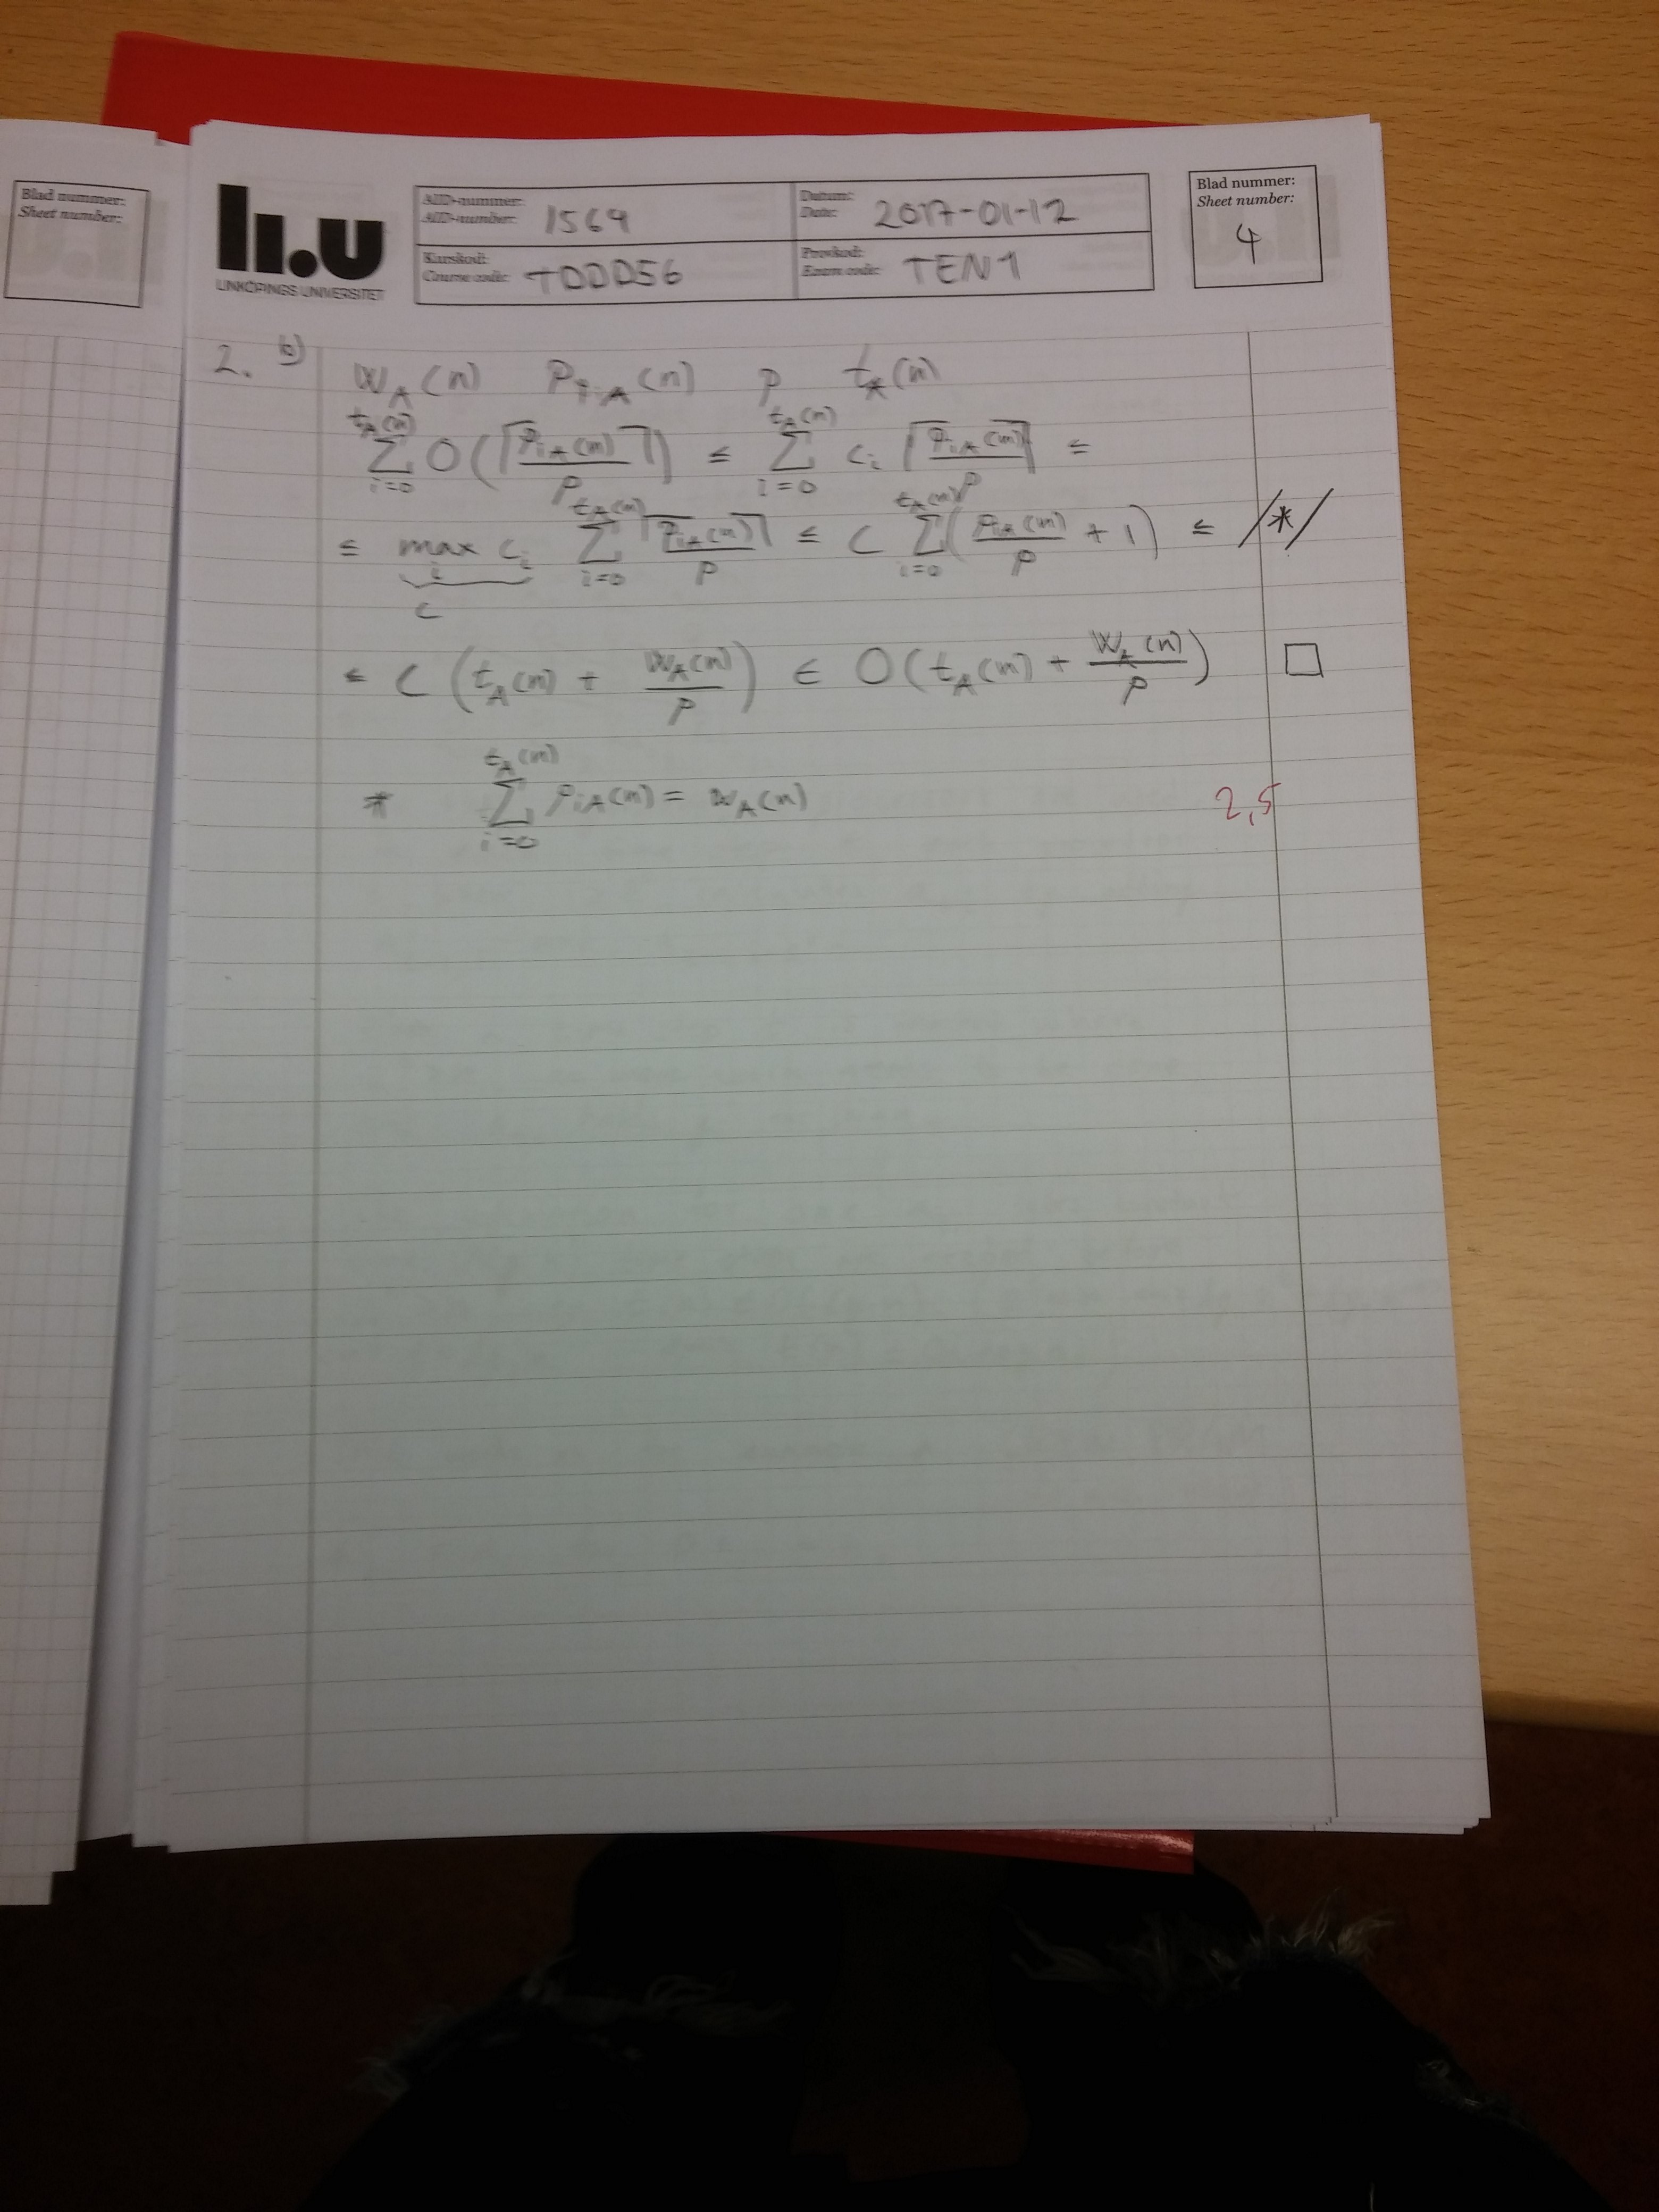 Blad nummer:
Sheet number:
li.u
LINKÖPINGS UNIVERSITET
AID-nummer:
AID-number: 1569
Datum:
Date: 2017-01-12
Kurskod:
Course code: TDDD56
Provkod:
Exam code: TEN1
Blad nummer:
Sheet number:
4
2. b) W_A(n) P_{iA}(n) p t_A(n)
∑_{i=0}^{t_A(n)} O(⌈P_{iA}(n)/p⌉) ≤ ∑_{i=0}^{t_A(n)} c_i ⌈P_{iA}(n)/p⌉ ≤
≤ max_i c_i ∑_{i=0}^{t_A(n)} ⌈P_{iA}(n)/p⌉ ≤ C ∑_{i=0}^{t_A(n)} (P_{iA}(n)/p + 1) ≤ /*/
C
≤ C (t_A(n) + W_A(n)/p) ∈ O(t_A(n) + W_A(n)/p) □
* ∑_{i=0}^{t_A(n)} P_{iA}(n) = W_A(n)
2,5